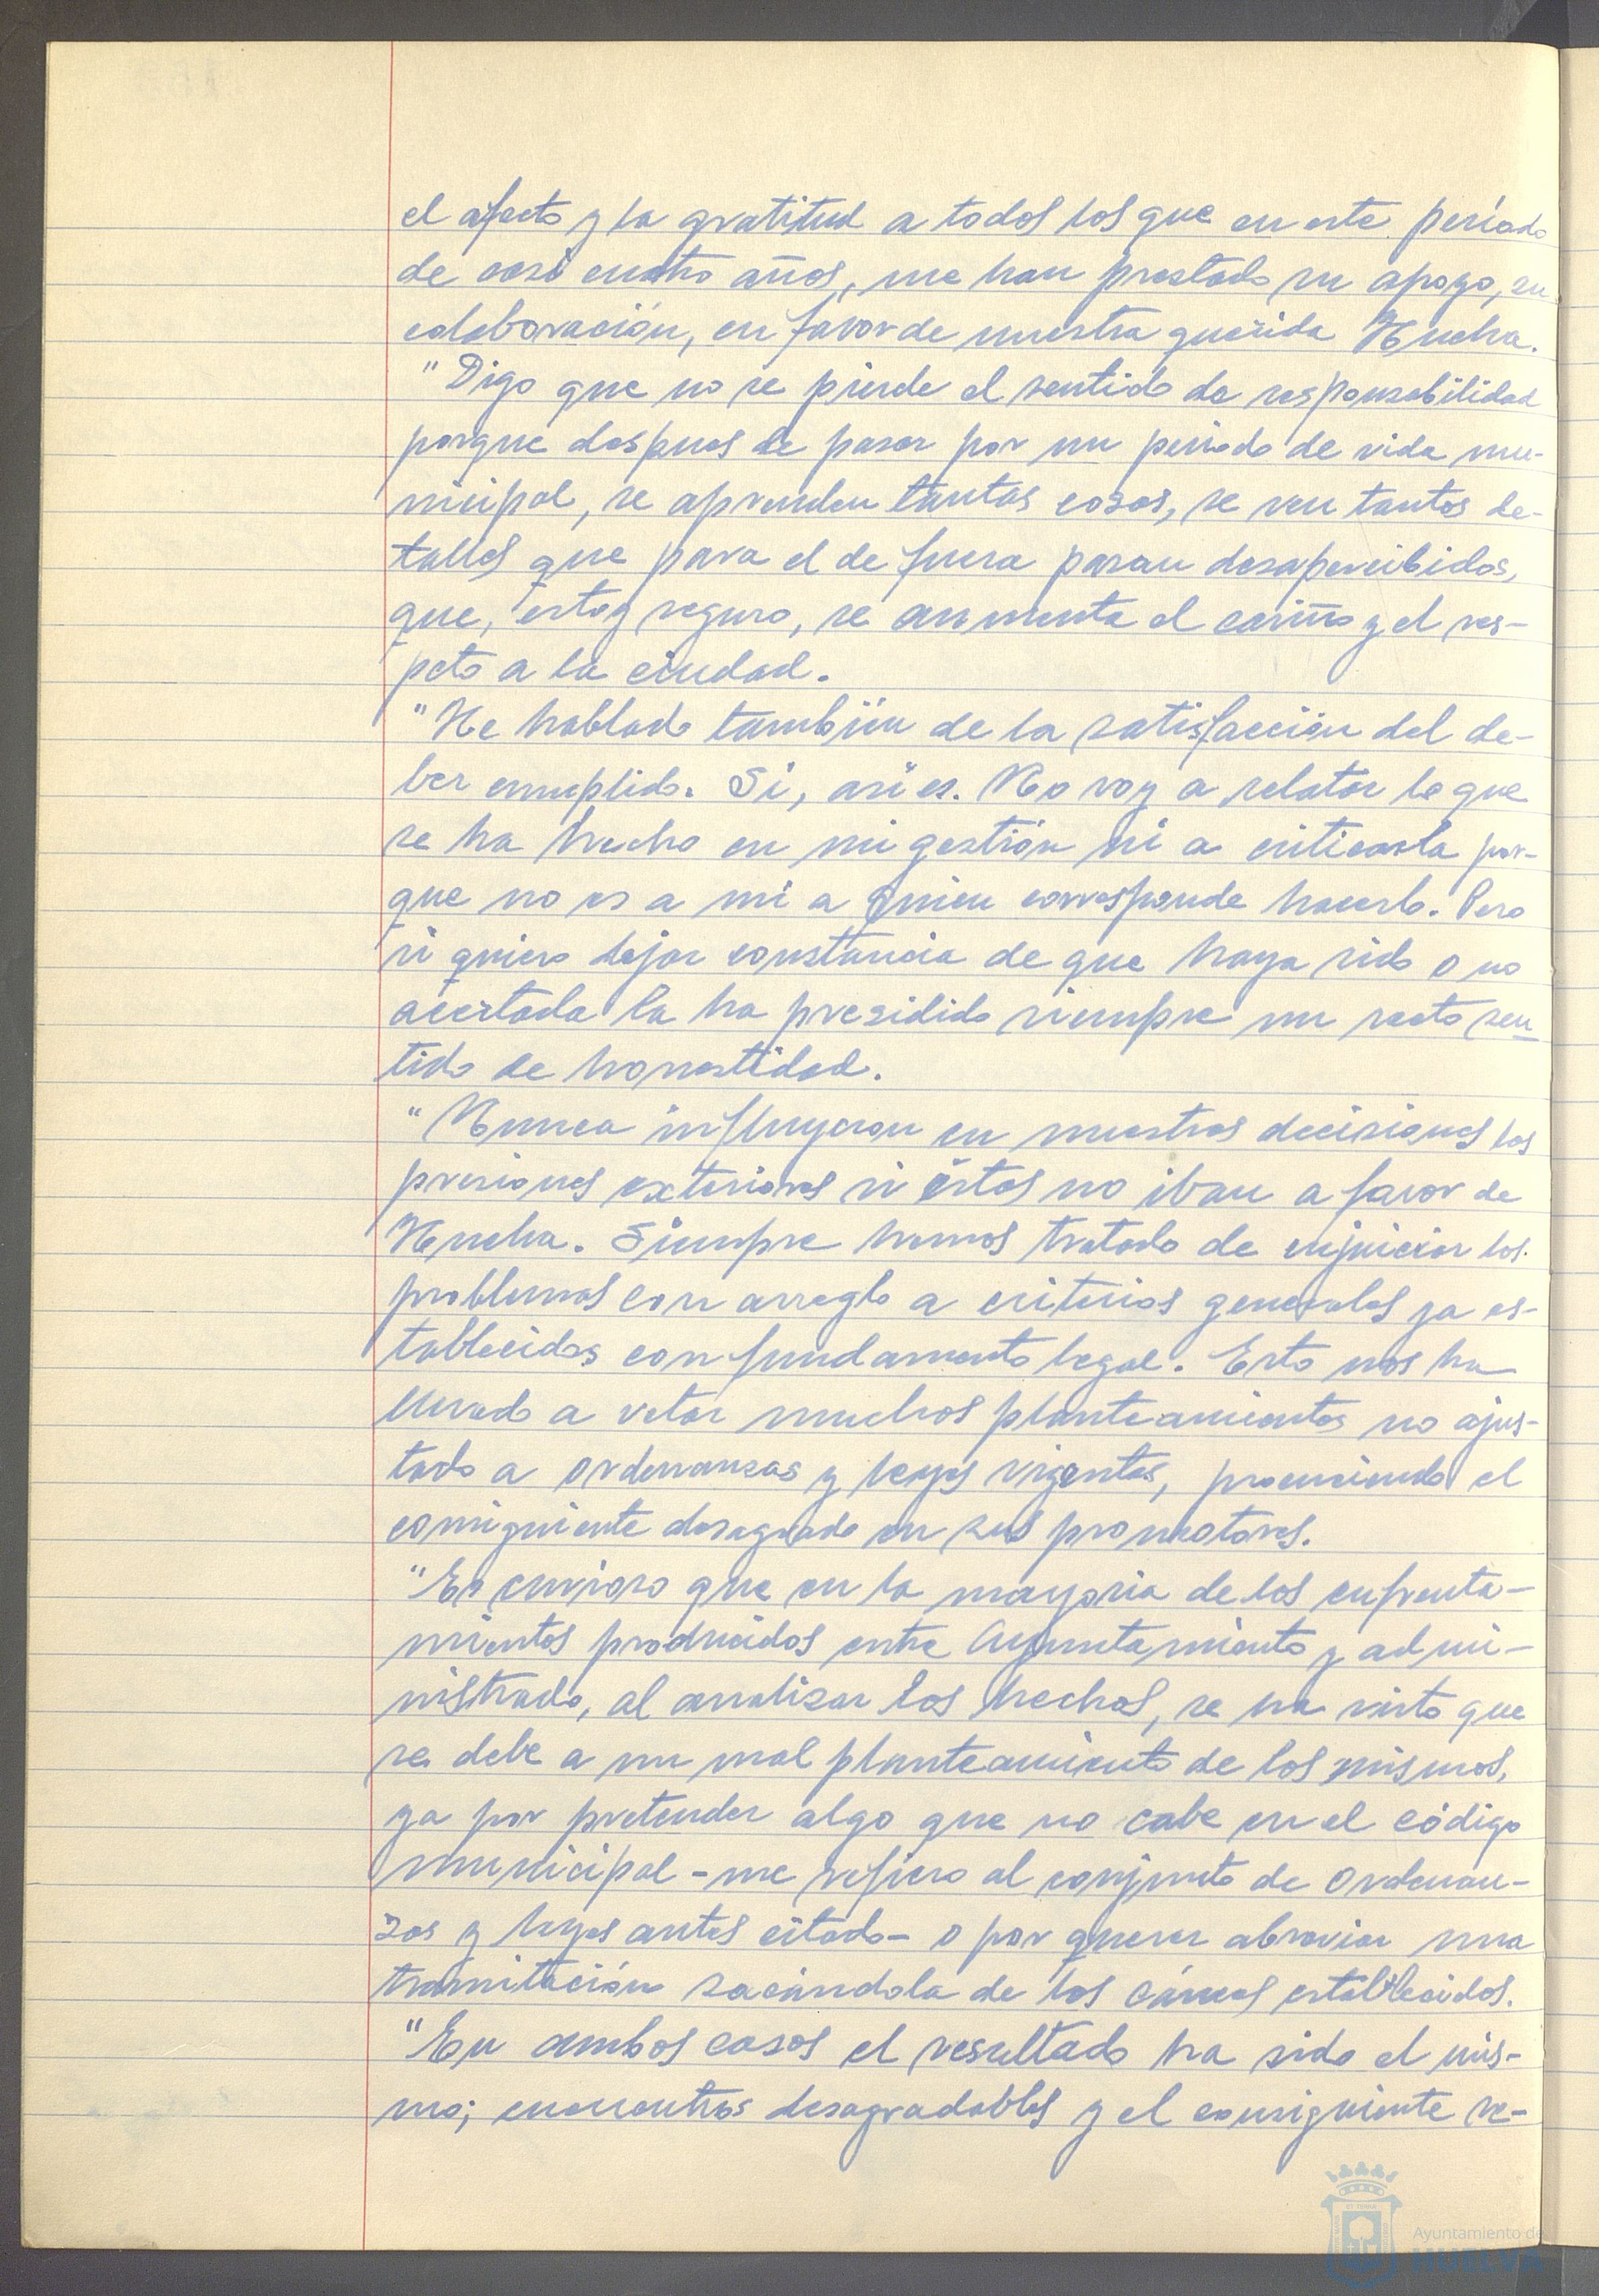 el afecto y la gratitud a todos los que en este período
de casi cuatro años, me han prestado su apoyo, su
colaboración, en favor de nuestra querida Huelva.
"Digo que no se pierde el sentido de responsabilidad
porque despues de pasar por un periodo de vida mu-
nicipal, se aprenden tantas cosas, se ven tantos de-
talles que para el de fuera pasan desapercibidos,
que, estoy seguro, se aumenta el cariño y el res-
peto a la ciudad.
"He hablado también de la satisfacción del de-
ber cumplido. Si, así es. No voy a relatar lo que
se ha hecho en mi gestión ni a criticarla por-
que no es a mi a quien corresponde hacerlo. Pero
si quiero dejar constancia de que haya sido o no
acertada la ha presidido siempre un recto sen
tido de honestidad.
"Nunca influyeron en nuestras decisiones las
presiones exteriores si éstas no iban a favor de
Huelva. Siempre hemos tratado de enjuiciar los
problemas con arreglo a criterios generales ya es-
tablecidos con fundamento legal. Esto nos ha
llevado a vetar muchos planteamientos no ajus-
tado a ordenanzas y leyes vigentes, provocando el
consiguiente desagrado en sus promotores.
"Es curioso que en la mayoria de los enfrenta-
mientos producidos entre Ayuntamiento y admi-
nistrado, al analizar los hechos, se ha visto que
se debe a un mal planteamiento de los mismos,
ya por pretender algo que no cabe en el código
municipal - me refiero al conjunto de Ordenan-
zas y leyes antes citado - o por querer abreviar una
tramitación sacándola de los cáuces establecidos.
"En ambos casos el resultado ha sido el mis-
mo; encuentros desagradables y el consiguiente re-
Ayuntamiento de
HUELVA